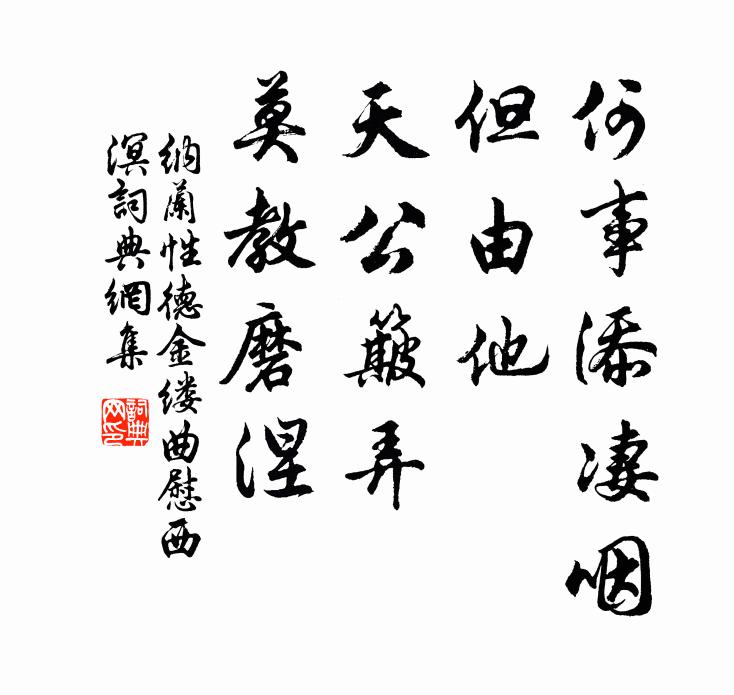 何事添凄咽
但由他
天公簸弄
莫教磨涅
纳蘭性德金缕曲慰西
溟詞典網集
詞典网印